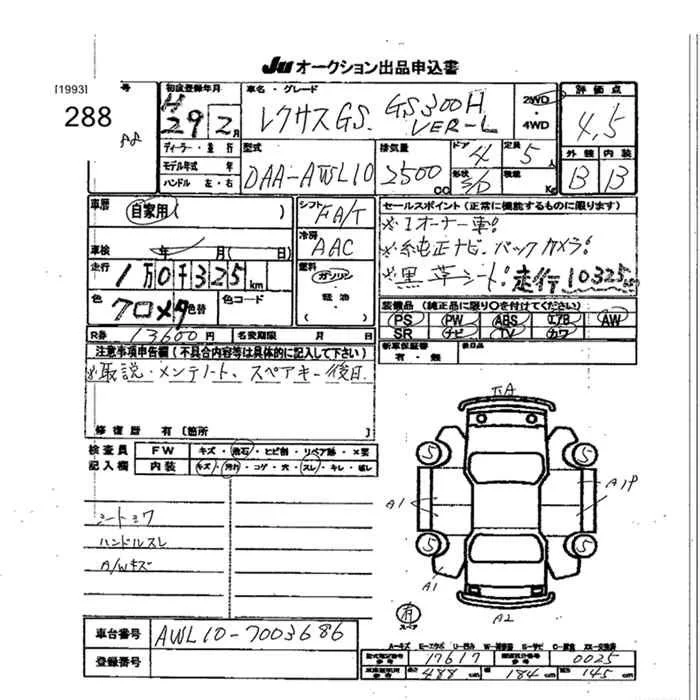 Ju オークション出品申込書
[1993]
号
288
初度登録年月
H
29年2月
車名・グレード
レクサスGS. GS300H
VER-L
2WD
・
4WD
評価点
4,5
ディーラー・並行
モデル年式 年
ハンドル 左・右
型式
DAA-AWL10
排気量
2500
CC
ドア
4
形状
S/D
定員
5人
積載
Kg
外装 内装
B B
車歴
自家用( )
シフト
FA/T
セールスポイント(正常に機能するものに限ります)
※1オーナー車!
※純正ナビ、バックカメラ!
※黒革シート!走行10325km
車検 年 月( 日)
冷房
AAC
走行
1万0千325km
燃料
ガソリン
・
軽油
( )
色
クロメタ
色替
色コード
装備品(純正品に限り○を付けてください)
PS PW ABS エアB AW
SR ナビ TV カワ
R券 13600円 名変期限 月 日
新車保証書
有・無
後日品
注意事項申告欄(不具合内容等は具体的に記入して下さい)
※取説・メンテノート、スペアキー後日
修復歴 有〔箇所
検査員
記入欄
FW キズ・飛石・ヒビ割・リペア跡・X要
内装 キズ・汚れ・コゲ・穴・スレ・キレ・破レ
シートシワ
ハンドルスレ
A/Wキズ
A
5 5
A1 A1P
5 5
A1
A2
有
スペア
車台番号 AWL10-7003686
登録番号
A-キズ E-エクボ U-凹み W-補修跡 S-サビ C-腐食 XX-交換済
型式指定番号 17617 類別区分番号 0025
488cm 幅 184cm 高さ 145cm